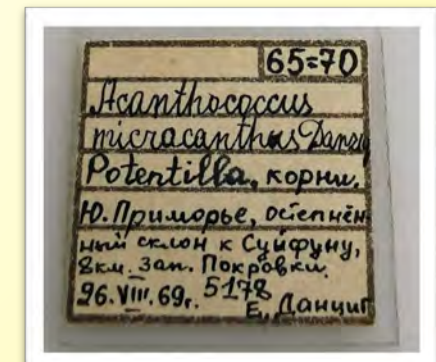 65=70
Acanthococcus
micracanthus Danzig
Potentilla, корни.
Ю. Приморье, остепнён-
ный склон к Суйфуну,
8км. Зап. Покровки.
26.VIII.69г. 5178
Е. Данциг